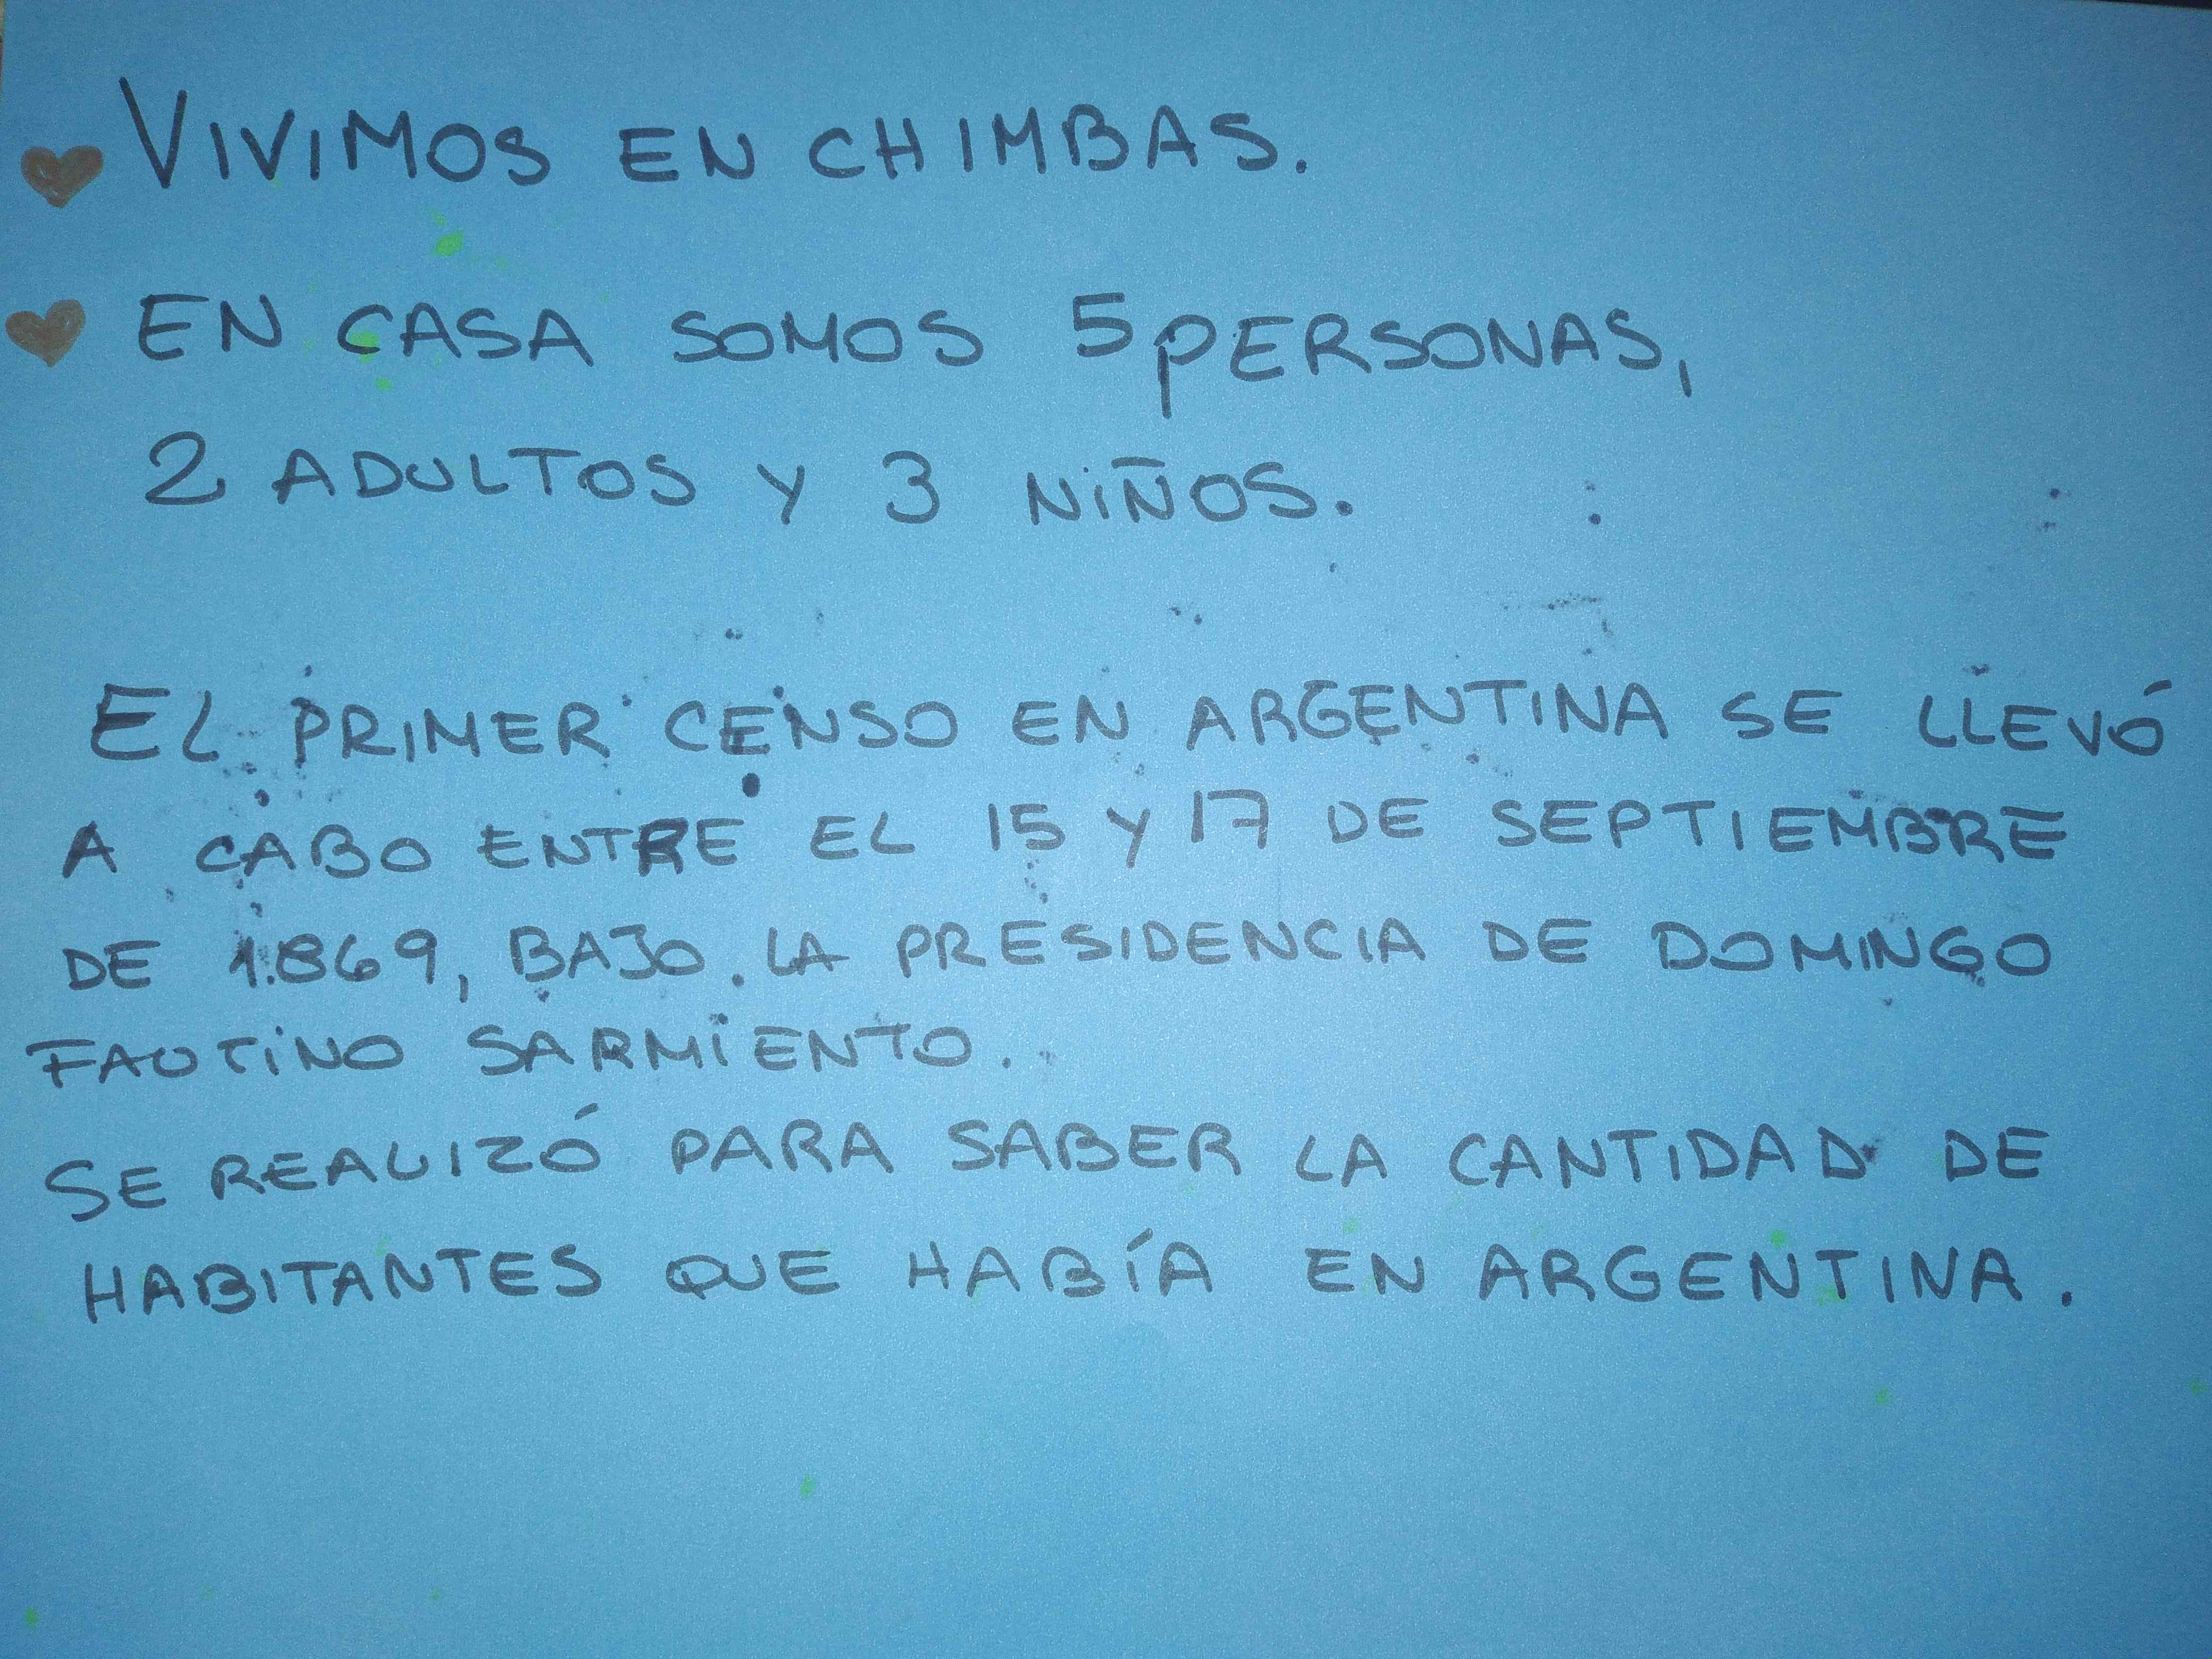 VIVIMOS EN CHIMBAS.
EN CASA SOMOS 5 PERSONAS,
2 ADULTOS Y 3 NIÑOS.
EL PRIMER CENSO EN ARGENTINA SE LLEVÓ
A CABO ENTRE EL 15 Y 17 DE SEPTIEMBRE
DE 1.869, BAJO LA PRESIDENCIA DE DOMINGO
FAUTINO SARMIENTO.
SE REALIZÓ PARA SABER LA CANTIDAD DE
HABITANTES QUE HABÍA EN ARGENTINA.